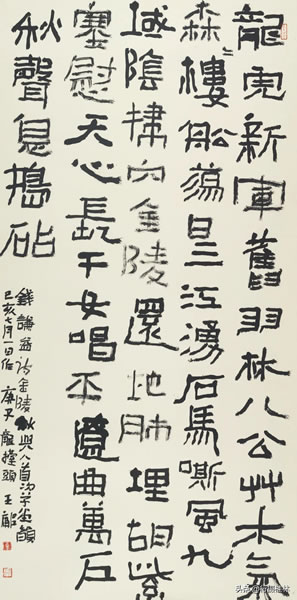 龍虎新軍舊羽林八公艸木氣
森〻樓船蕩日三江湧石馬嘶風九
域陰掃穴金陵還地肺埋胡紫
塞慰天心長干女唱平遼曲萬戶
秋聲息搗砧
錢謙益詩金陵秋興八首次草堂韻
己亥七月一日作 庚子龍擡頭 王